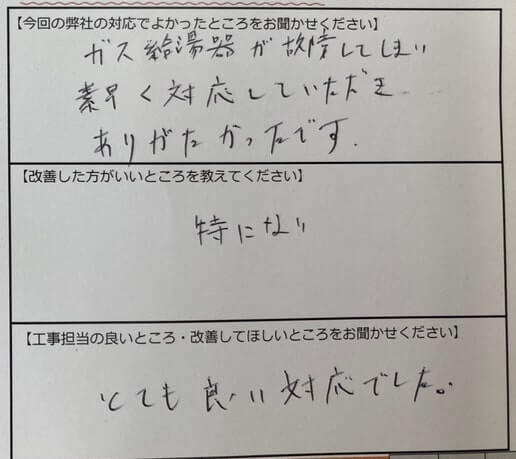 【今回の弊社の対応でよかったところをお聞かせください】
ガス給湯器が故障してしまい
素早く対応していただき
ありがたかったです.
【改善した方がいいところを教えてください】
特にない
【工事担当の良いところ・改善してほしいところをお聞かせください】
とても良い対応でした。